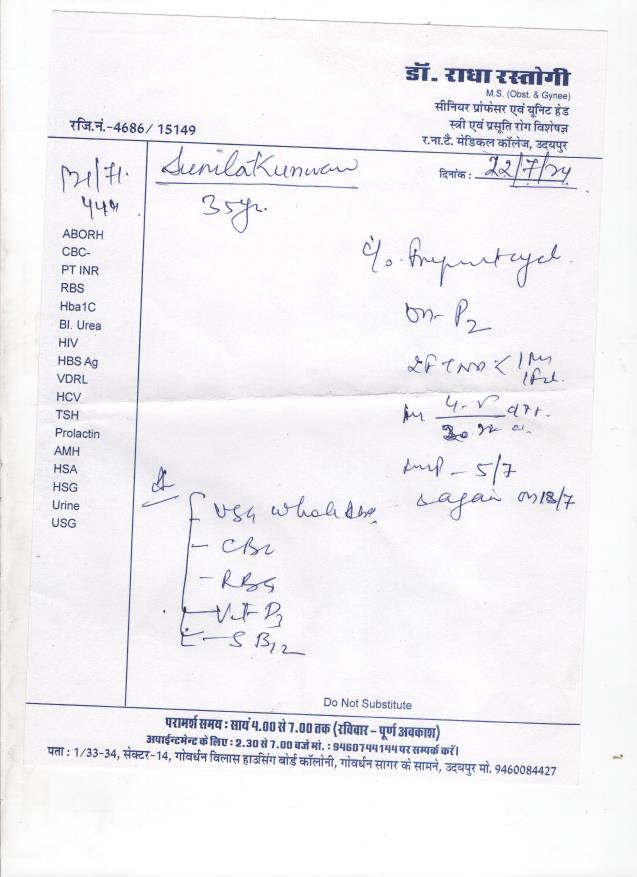 डॉ. राधा रस्तोगी
M.S. (Obst. & Gynee)
सीनियर प्रोफेसर एवं यूनिट हेड
स्त्री एवं प्रसूति रोग विशेषज्ञ
र.ना.टै. मेडिकल कॉलेज, उदयपुर
रजि.नं.-4686/ 15149
दिनांक : 22/7/24
Sunila Kunwar
35yr.
ABORH
CBC-
PT INR
RBS
Hba1C
Bl. Urea
HIV
HBS Ag
VDRL
HCV
TSH
Prolactin
AMH
HSA
HSG
Urine
USG
c/o
on- P2
LMP - 5/7
again on 18/7
USG whole
- CBC
- RBS
- Vit D3
- S B12
Do Not Substitute
परामर्श समय : सायं 4.00 से 7.00 तक (रविवार - पूर्ण अवकाश)
अपाईन्टमेन्ट के लिए : 2.30 से 7.00 बजे मो. : 9460744144 पर सम्पर्क करें।
पता : 1/33-34, सेक्टर-14, गोवर्धन विलास हाउसिंग बोर्ड कॉलोनी, गोवर्धन सागर के सामने, उदयपुर मो. 9460084427